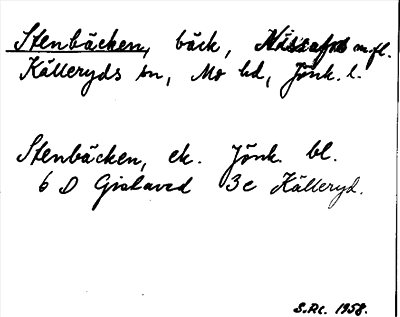 Stenbäcken, bäck, m.fl.
Källeryds sn, Mo hd, Jönk. l.
Stenbäcken, ek. Jönk. bl.
6 D Gislaved 3c Källeryd.
S.Rc. 1958.